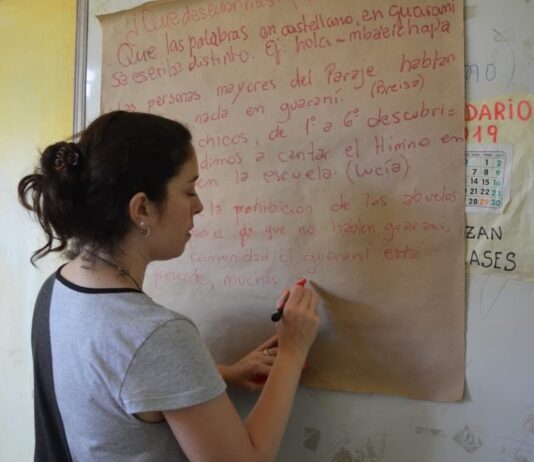 ¿Que descubrimos?
Que las palabras en castellano, en Guaraní
se escribe distinto. Ej: hola - mbaeichapa
las personas mayores del Paraje hablan
nada en guaraní. (Breisa)
chicos, de 1° a 6° descubri=
dimos a cantar el Himno en
en la escuela (Lucía)
la prohibición de los abuelos
padres de que no hablen guaraní,
comunidad el guaraní está
presente, muchas
DARIO
19
1 2
8 9
15 16
22 23
29 30
ZAN
ASES